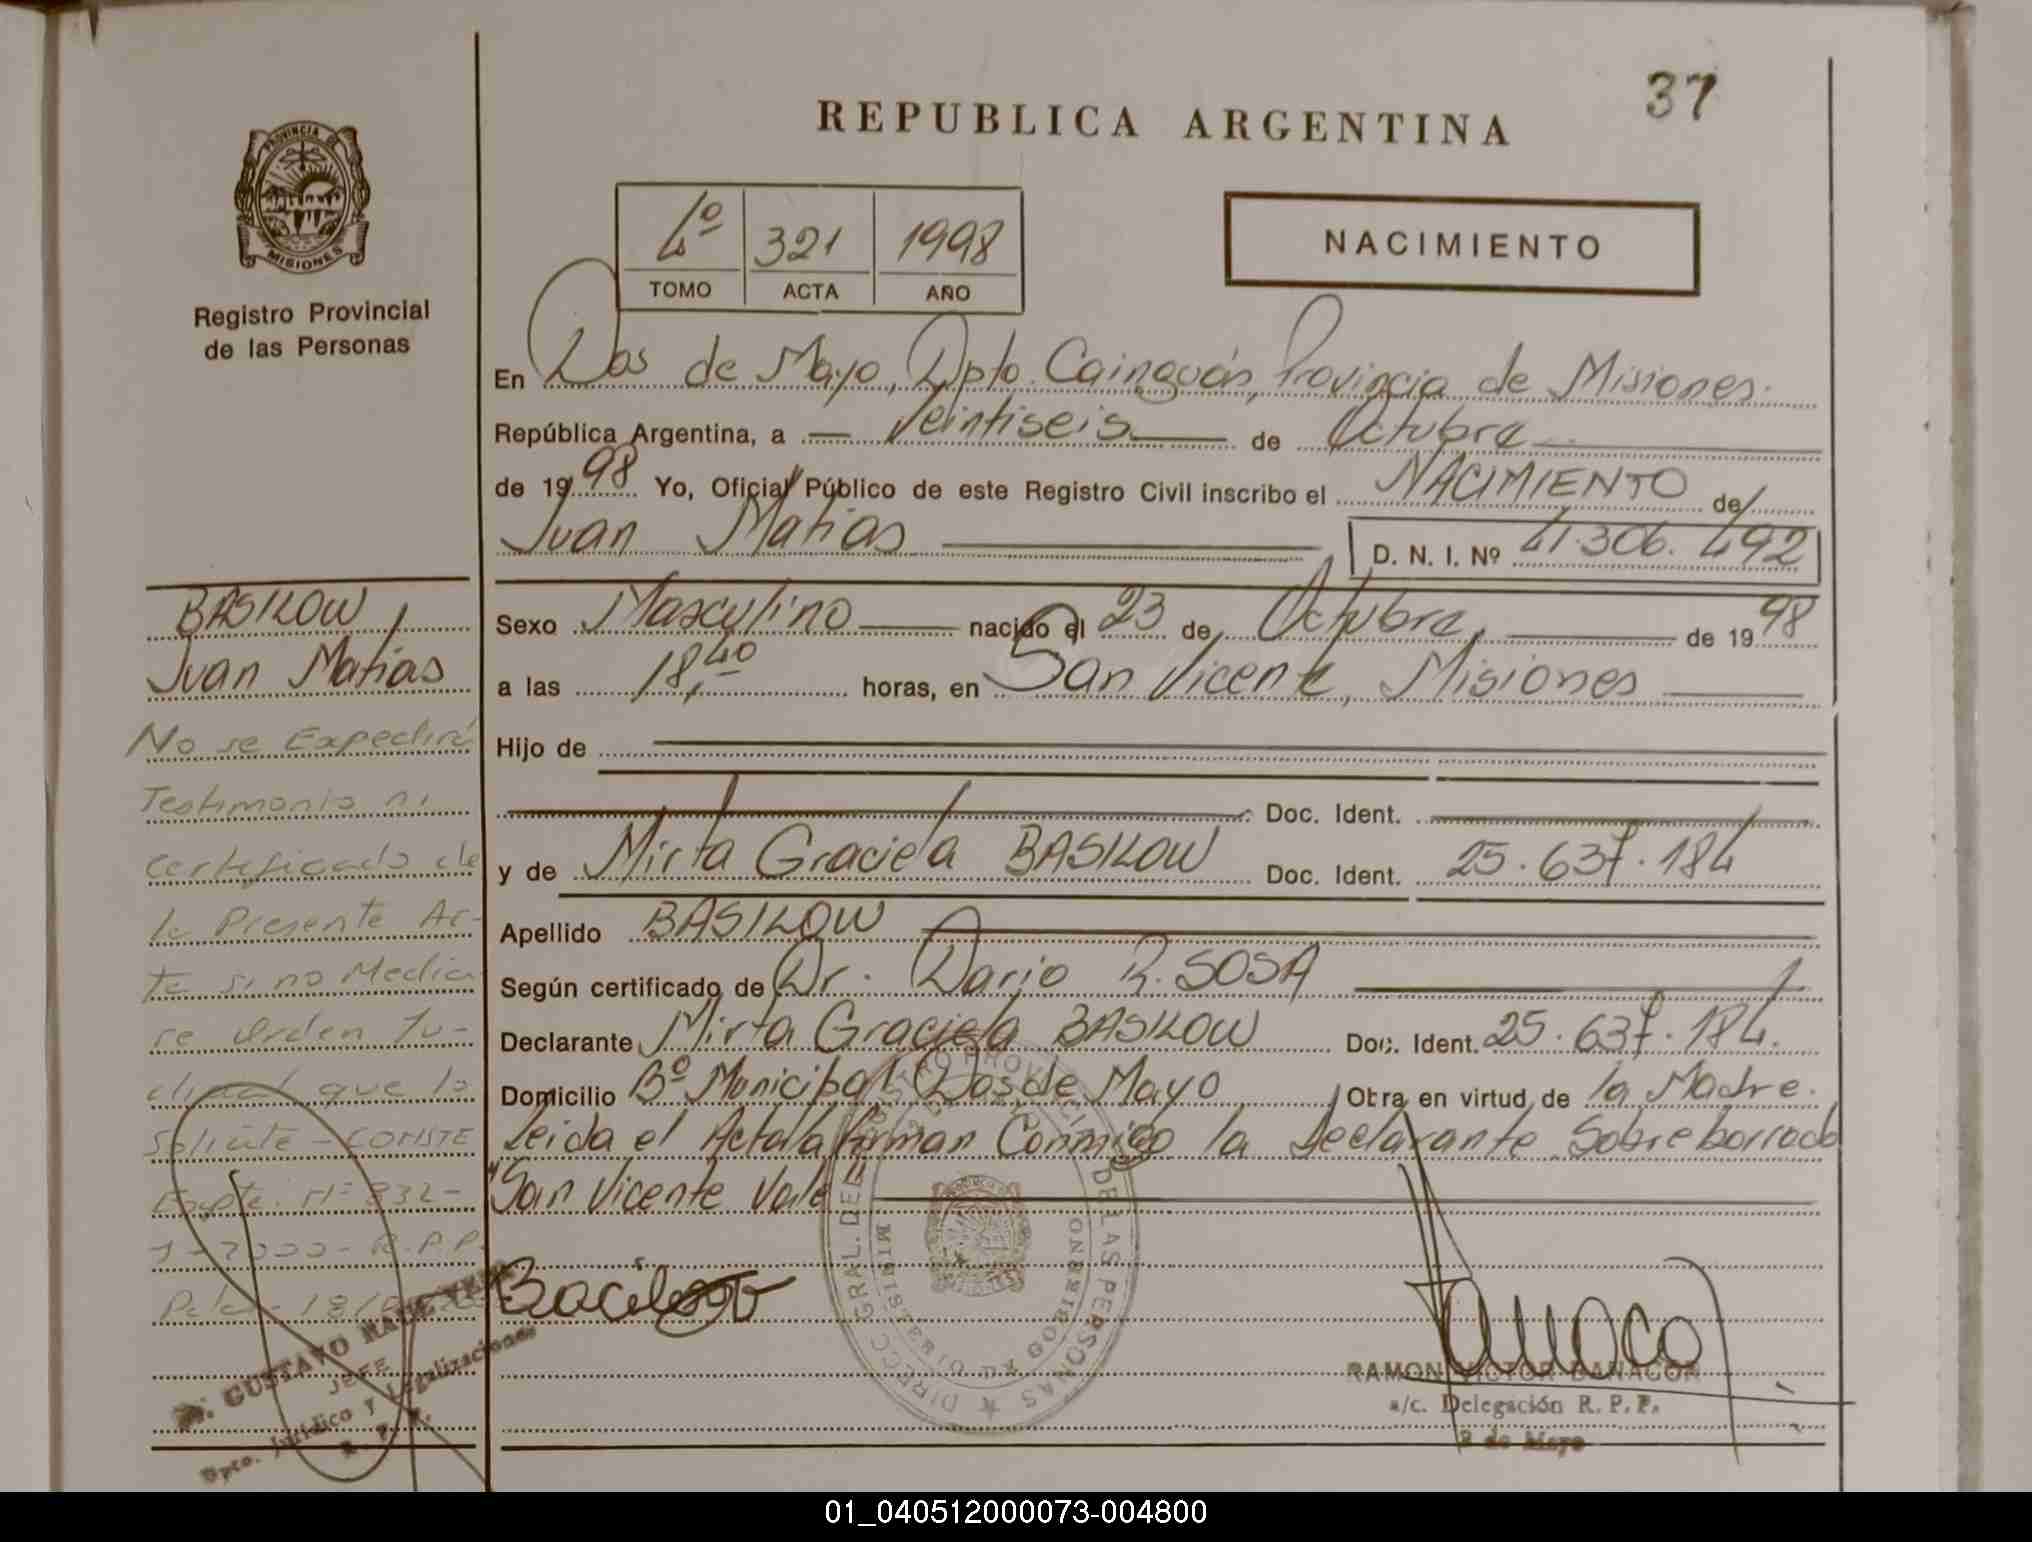 37
REPUBLICA ARGENTINA
PROVINCIA DE
MISIONES
Registro Provincial
de las Personas
4º 321 1998
TOMO ACTA AÑO
NACIMIENTO
En Dos de Mayo, Dpto. Cainguás, Provincia de Misiones.
República Argentina, a Veintiseis de Octubre
de 1998 Yo, Oficial Público de este Registro Civil inscribo el NACIMIENTO de
Juan Matias D. N. I. Nº 41.306.492
Sexo Masculino nacido el 23 de Octubre, de 1998
a las 18,40 horas, en San Vicente, Misiones
Hijo de
Doc. Ident.
y de Mirta Graciela BASILOW Doc. Ident. 25.637.184
Apellido BASILOW
Según certificado de Dr. Dario R. SOSA
Declarante Mirta Graciela BASILOW Doc. Ident. 25.637.184.
Domicilio Bº Municipal Dos de Mayo Obra en virtud de la Madre.
Leida el Acta la firman Conmigo la Declarante. Sobreborrado
"San Vicente Vale
BASILOW
Juan Matias
No se Expedirá
Testimonio ni
Certificado de
la Presente Ac-
ta si no Media
re Orden Ju-
dicial que lo
Solicite - CONSTE
Expte. Nº 832-
R.P.P.
GUSTAVO
JEFE
Dpto. Jurídico y Legalizaciones
R. P. P.
DIRECC. GRAL. DEL REGISTRO PROVINCIAL DE LAS PERSONAS
MINISTERIO DE GOBIERNO
RAMON VICTOR DANACOR
a/c. Delegación R. P. P.
2 de Mayo
01_040512000073-004800